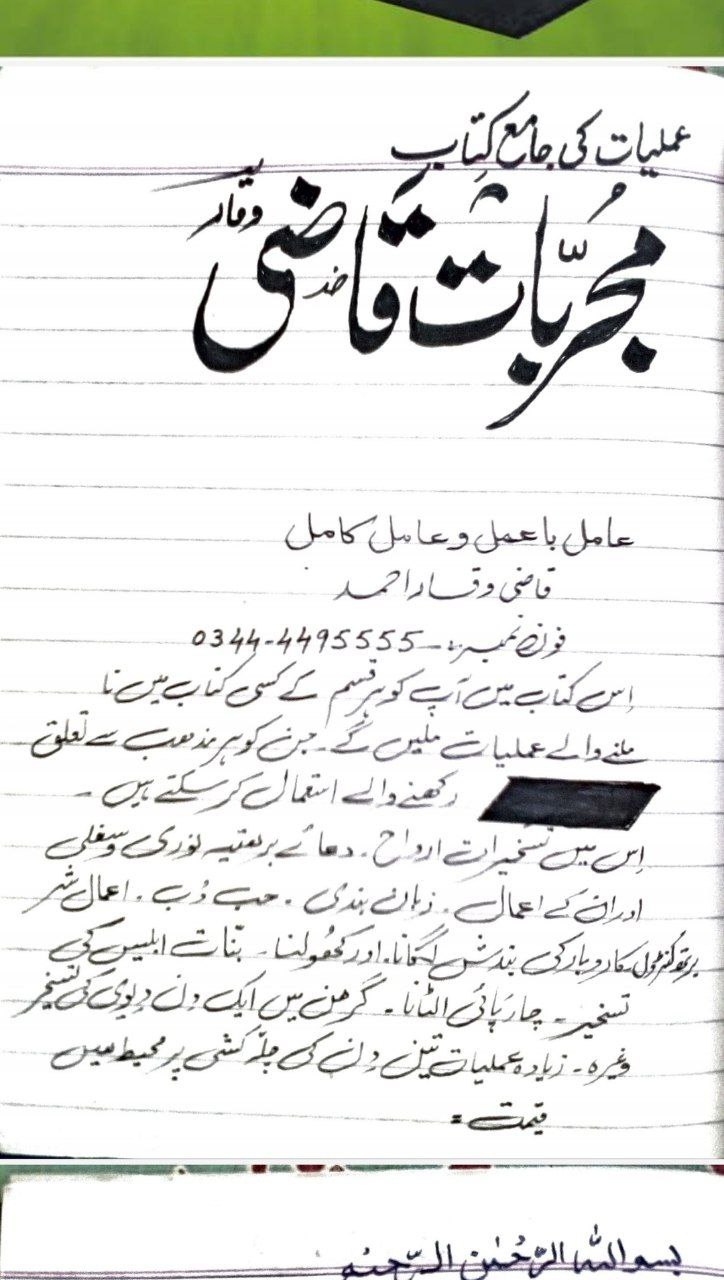 عملیات کی جامع کتاب
مجرّباتِ قاضی
وقار
عامل باعمل و عامل کامل
قاضی وقار احمد
فون نمبر:۔ 0344-4495555
اِس کتاب میں آپ کو ہر قسم کے کسی کتاب میں نا
ملنے والے عملیات ملیں گے۔ جن کو ہر مذہب سے تعلق
رکھنے والے استعمال کر سکتے ہیں۔
اِس میں تسخیرات ارواح۔ دعائے برہتیہ نوری و سفلی
اور ان کے اعمال۔ زبان بندی۔ حب دُب۔ اعمال شر
کاروبار کی بندش لگانا۔ اور کھُولنا۔ بنّات ابلیس کی
تسخیر۔ چارپائی الٹانا۔ گرھن میں ایک دن دیوی کی تسخیر
وغیرہ۔ زیادہ عملیات تین دن کی چلّہ کشی پر محیط ہیں
قیمت =
بسم اللہ الرّحمٰن الرّحیم